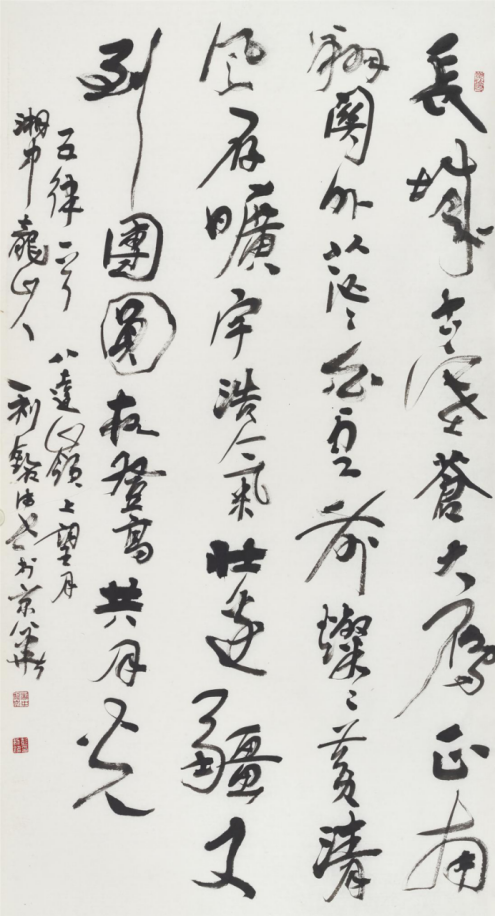 長城古塞蒼大雁正南
翔關外茫茫前燦燦黃清
風存曠宇浩氣壯邊疆又
到團圓夜登高共月光
五律一首 八達嶺上望月
湘中龍山人 利書於京華